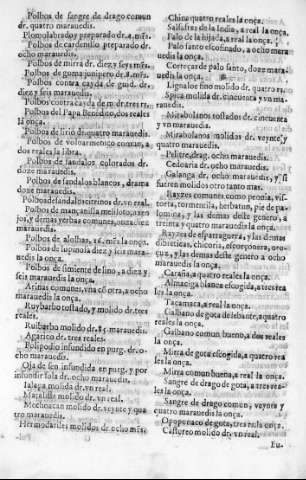 Polbos de sangre de drago comun
dr. quatro marauedis.
Plomo labrado y preparado dr. 4. mrs.
Polbos de cardenillo preparado dr.
ocho marauedis.
Polbos de mirra dr. diez y seys mrs.
Polbos de goma junipero dr. 8. mrs.
Polbos contra cayda de guid. dr.
diez y seis marauedis.
Polbos contra cayda de m. dr. tres rs.
Polbos del Papa Benedito, dos reales
la onça.
Polbos de lirio dr. quatro marauedis
Polbos de voloarmenico comun, a
dos reales la libra.
Polbos de sandalos colorados dr.
doze marauedis.
Polbos de sandalos blancos, a drama
doze marauedis.
Polbos de sandalos citrinos dr. vn real.
Polbos de mançanilla meliloto, axenjos,
y demas yerbas comunes, onça doze
marauedis.
Polbos de alolbas, 16. mrs la onça.
Polbos de lupinola diez y seis marauedis
la onça.
Polbos de simiente de lino, a diez y
seis marauedis la onça.
Arinas comunes, vna cõ otra, a ocho
marauedis la onça.
Ruybarbo tostado, y molido dr. tres
reales.
Ruibarbo molido dr. 85. marauedis.
Agarico dr. tres reales.
Poligodio infundido en purg. dr. ocho
marauedis.
Oja de sen infundida en purg. y por
infundir sola dr. ocho marauedis.
Ialapa molida dr. vn real.
Matalisse molido dr. vn real.
Mechoacan molido dr. veynte y quatro
marauedis.
Hermodatiles molidos dr. ocho mrs.
China quatro reales la onça.
Salsifras de la India, a real la onça.
Palo de la hijada, a real la onça.
Palo santo escofinado, a ocho marauedis
la onça.
Corteças de palo santo, doze marauedis
la onça.
Lignaloe fino molido dr. quatro rs.
Spica molida dr. cincuenta y vn marauedis.
Mirabolanos tostados dr. cincuenta
y vn marauedis.
Mirabolanos molidos dr. veynte y
quatro marauedis.
Pelitre, drag. ocho marauedis.
Cedoaria dr. ocho marauedis.
Galanga dr. ocho marauedis, y si
fueren molidos otro tanto mas.
Rayzes comunes como peonia, vistorta,
tormentila, berbatun, pie de palomina,
y las demas deste genero, a
treinta y quatro marauedis la onça.
Rayzes de esparraguera, y las demas
diureticas, chicoria, escorçonera, orocuz,
y las demas deste genero a ocho
marauedis la onça.
Caraña, a quatro reales la onça.
Almaciga blanca escogida, a tres reales
la onça.
Tacamaca, a real la onça.
Galbano de gota de lebante, a quatro
reales la onça.
Galbano comun bueno, a dos reales
la onça.
Mirra de gota escogida, a quatro reales
la onça.
Mirra comun buena, a real la onça.
Sangre de drago de gota, a tres reales
la onça.
Sangre de drago comun, veynte y
quatro marauedis la onça.
Opoponaco de gota, tres rs. la onça.
Castoreo molido dr. vn real.
Eu-